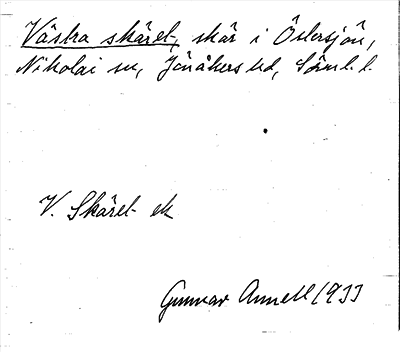 Västra skäret, skär i Östersjön,
Nikolai sn, Jönåkers hd, Sörml. l.
V. Skäret ek
Gunnar Annell 1933